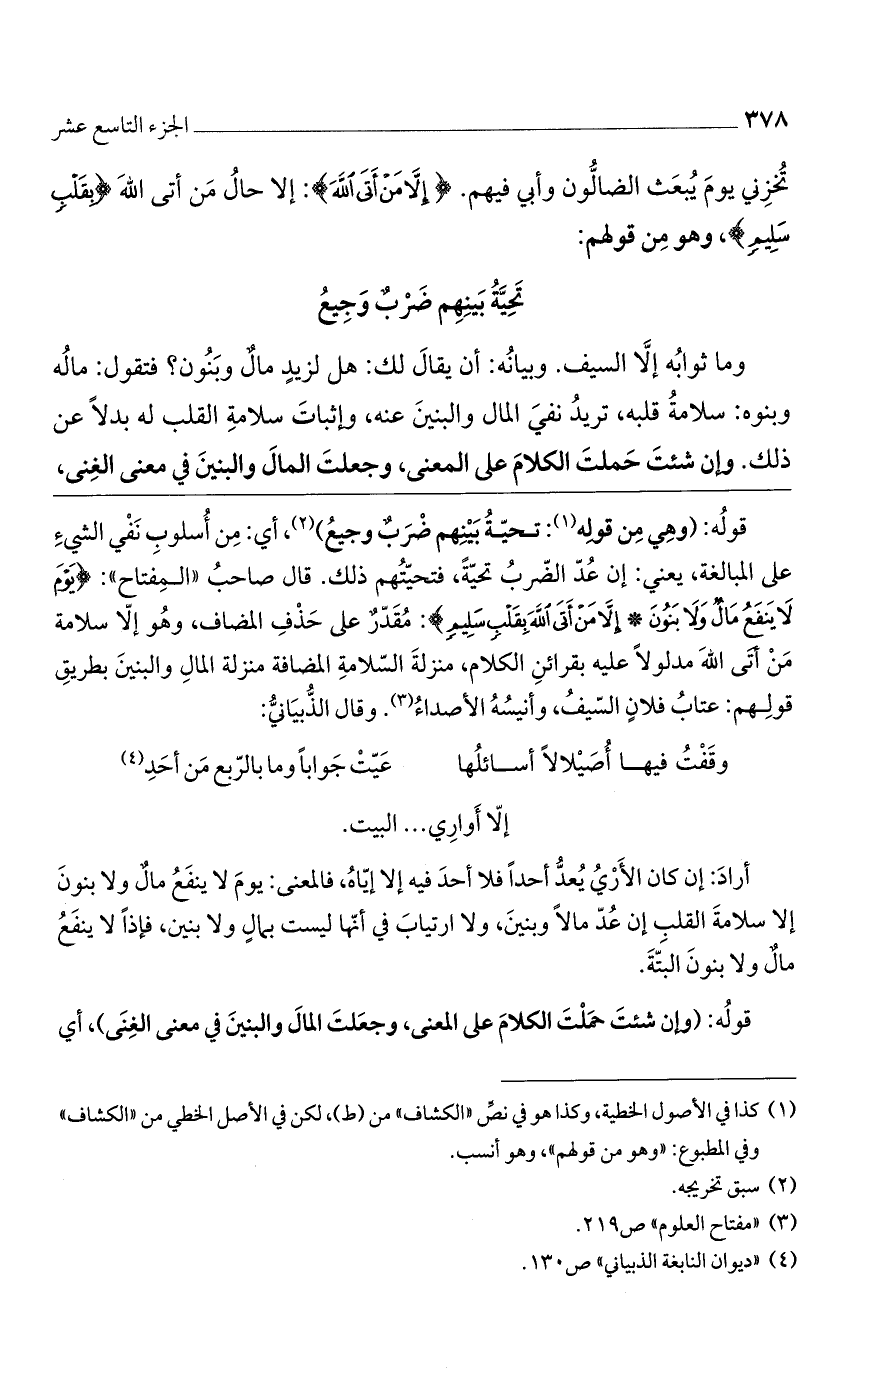 ٣٧٨ الجزء التاسع عشر
تُخزِني يومَ يُبعَث الضالُّون وأبي فيهم. ﴿إِلَّا مَنْ أَتَى ٱللَّهَ﴾: إلا حالُ مَن أتى اللهَ ﴿بِقَلْبٍ
سَلِيمٍ﴾، وهو مِن قولهم:
تَحِيَّةُ بَينِهِم ضَرْبٌ وَجِيعُ
وما ثوابُه إلَّا السيف. وبيانُه: أن يقالَ لك: هل لزيدٍ مالٌ وبَنُون؟ فتقول: مالُه
وبنوه: سلامةُ قلبه، تريدُ نفيَ المال والبنينَ عنه، وإثباتَ سلامةِ القلب له بدلاً عن
ذلك. وإن شئتَ حَملتَ الكلامَ على المعنى، وجعلتَ المالَ والبنينَ في معنى الغِنى،
قولُه: (وهِي مِن قولِه(١): تـحيّـةُ بَيْنِهم ضْرَبٌ وجيعُ)(٢)، أي: مِن أُسلوبِ نَفْي الشيءِ
على المبالغة، يعني: إن عُدّ الضّربُ تحيّةً، فتحيّتُهم ذلك. قال صاحبُ «الـمِفتاح»: ﴿يَوْمَ
لَا يَنفَعُ مَالٌ وَلَا بَنُونَ * إِلَّا مَنْ أَتَى ٱللَّهَ بِقَلْبٍ سَلِيمٍ﴾: مُقَدّرٌ على حَذْفِ المضاف، وهُو إلّا سلامة
مَنْ أَتَى اللهَ مدلولاً عليه بقرائنِ الكلام، منزلةَ السّلامةِ المضافة منزلة المالِ والبنينَ بطريقِ
قولِـهم: عتابُ فلانٍ السّيفُ، وأنيسُهُ الأصداءُ(٣). وقال الذُّبيَانيُّ:
وقَفْتُ فيهـا أُصَيْلالاً أسـائلُها عَيّتْ جَواباً وما بالرّبع مَن أحَدِ(٤)
إلّا أَوارِي... البيت.
أرادَ: إن كان الأَرْيُ يُعدُّ أحداً فلا أحدَ فيه إلا إيّاهُ، فالمعنى: يومَ لا ينفَعُ مالٌ ولا بنونَ
إلا سلامةَ القلبِ إن عُدّ مالاً وبنينَ، ولا ارتيابَ في أنّها ليست بمالٍ ولا بنين، فإذاً لا ينفَعُ
مالٌ ولا بنونَ البتّةَ.
قولُه: (وإن شئتَ حَمَلْتَ الكلامَ على المعنى، وجعَلتَ المالَ والبنينَ في معنى الغِنَى)، أي
(١) كذا في الأصول الخطية، وكذا هو في نصِّ «الكشاف» من (ط)، لكن في الأصل الخطي من «الكشاف»
وفي المطبوع: «وهو من قولهم»، وهو أنسب.
(٢) سبق تخريجه.
(٣) «مفتاح العلوم» ص٢١٩.
(٤) «ديوان النابغة الذبياني» ص١٣٠.